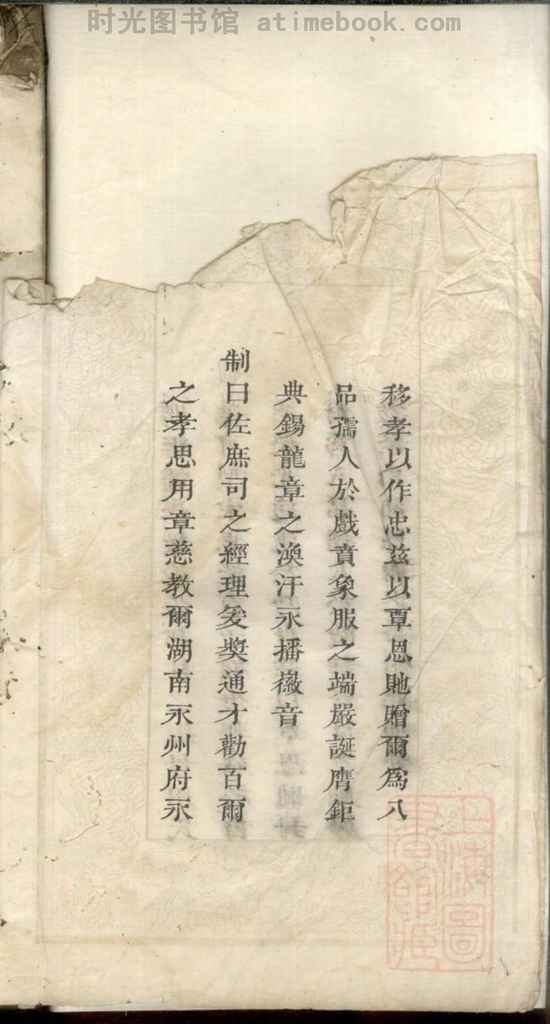 时光图书馆 atimebook.com
移孝以作忠茲以覃恩貤贈爾爲八
品孺人於戲賁象服之端嚴誕膺鉅
典錫龍章之渙汗永播徽音
制曰佐庶司之經理爰奬通才勸百爾
之孝思用章慈教爾湖南永州府永
上海圖
書館藏